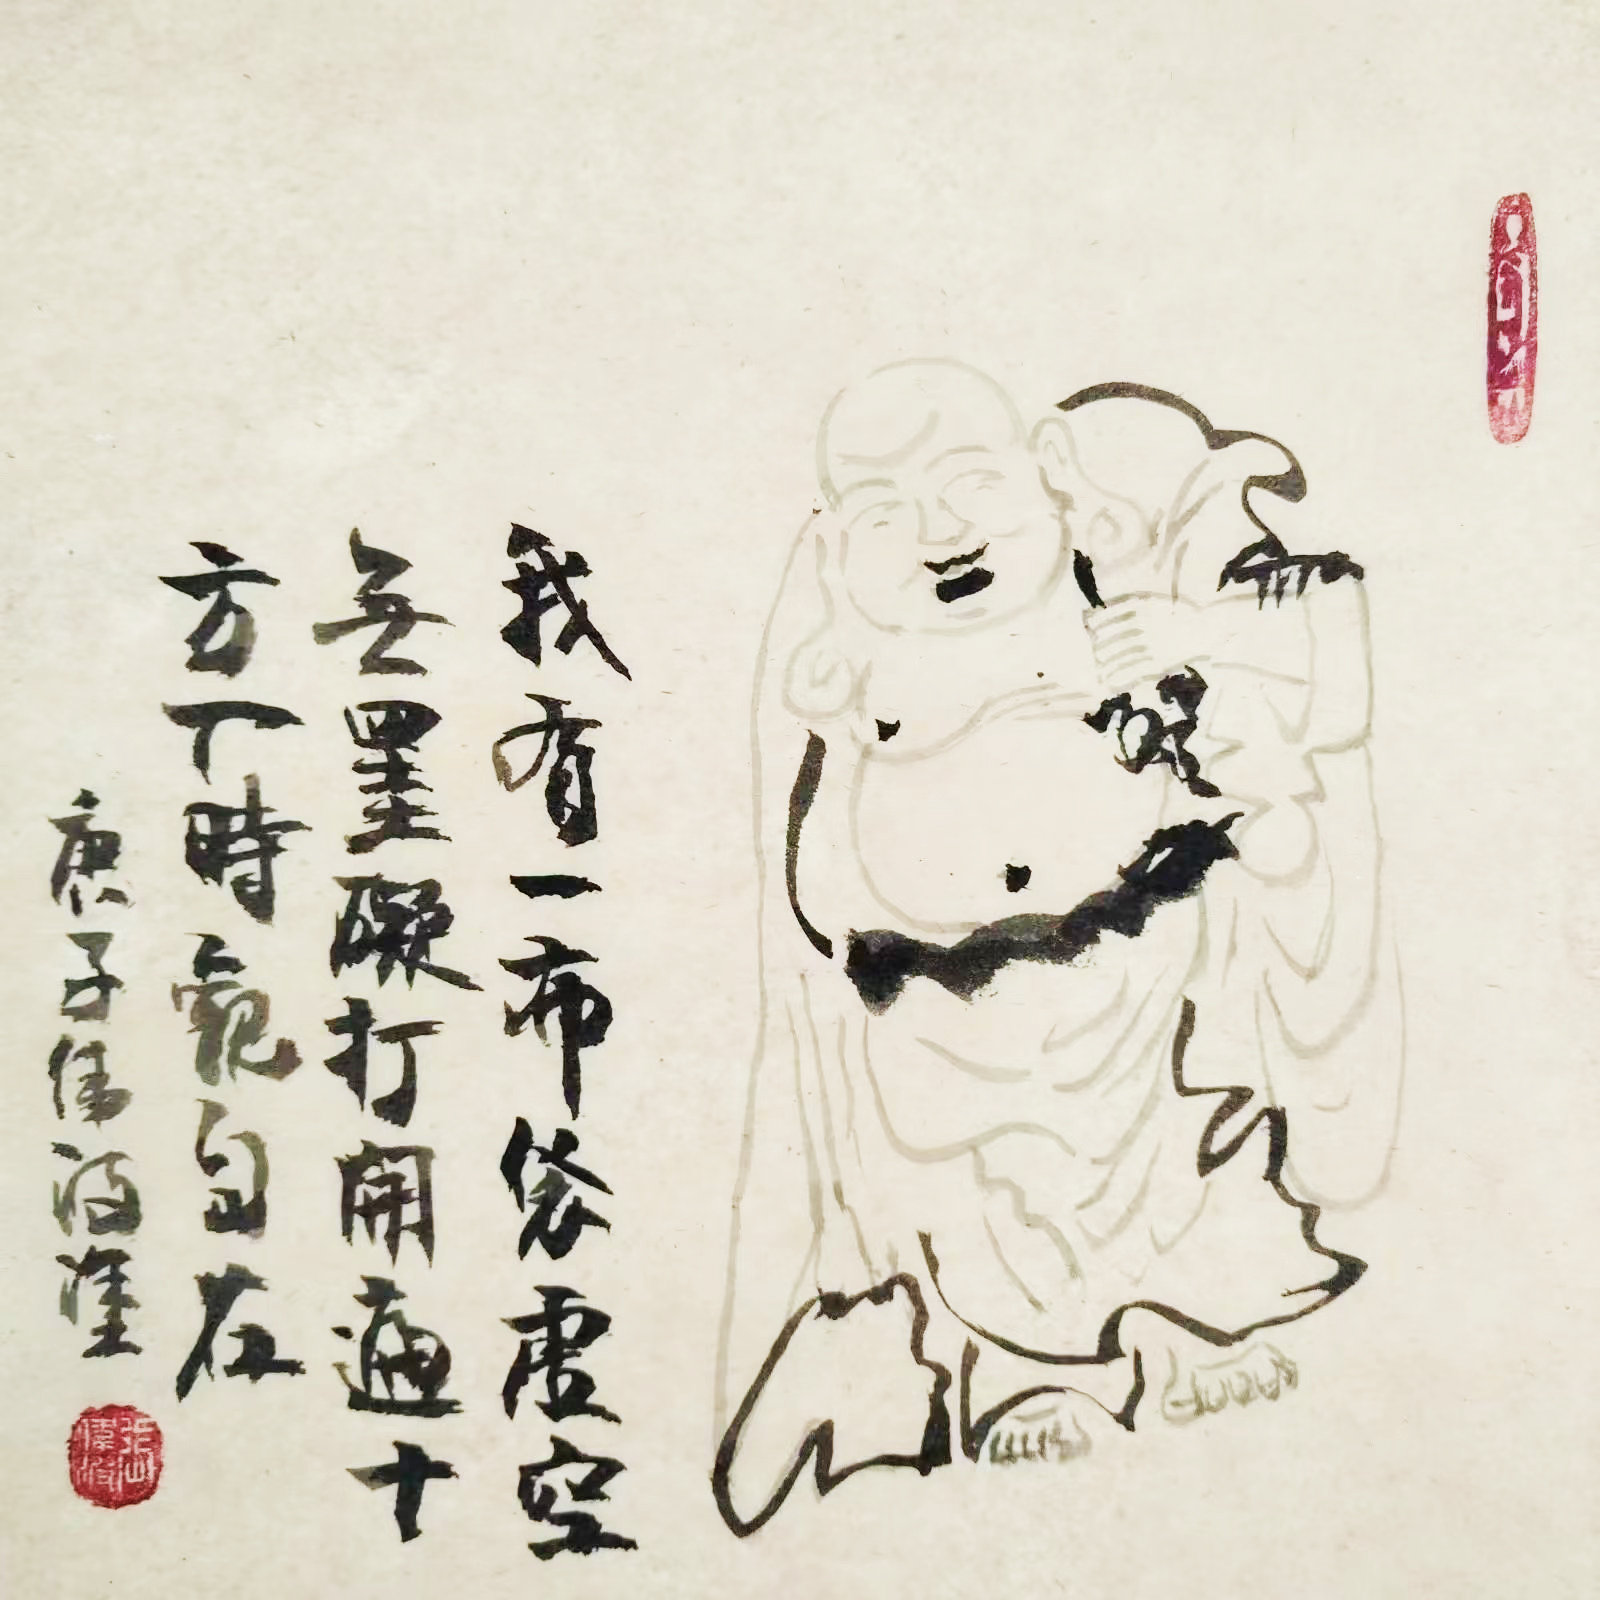 我有一布袋虛空
無罣礙打開遍十
方下時觀自在
庚子偉波